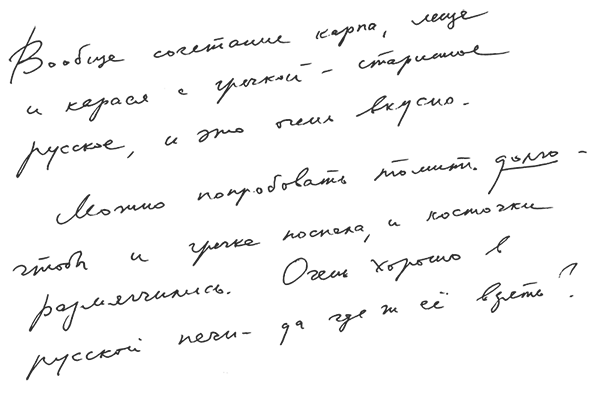 Вообще сочетание карпа, леща
и карася с гречкой – старинное
русское, и это очень вкусно.
Можно попробовать томить долго –
чтоб и гречка поспела, и косточки
размягчились. Очень хорошо в
русской печи – да где ж её взять?